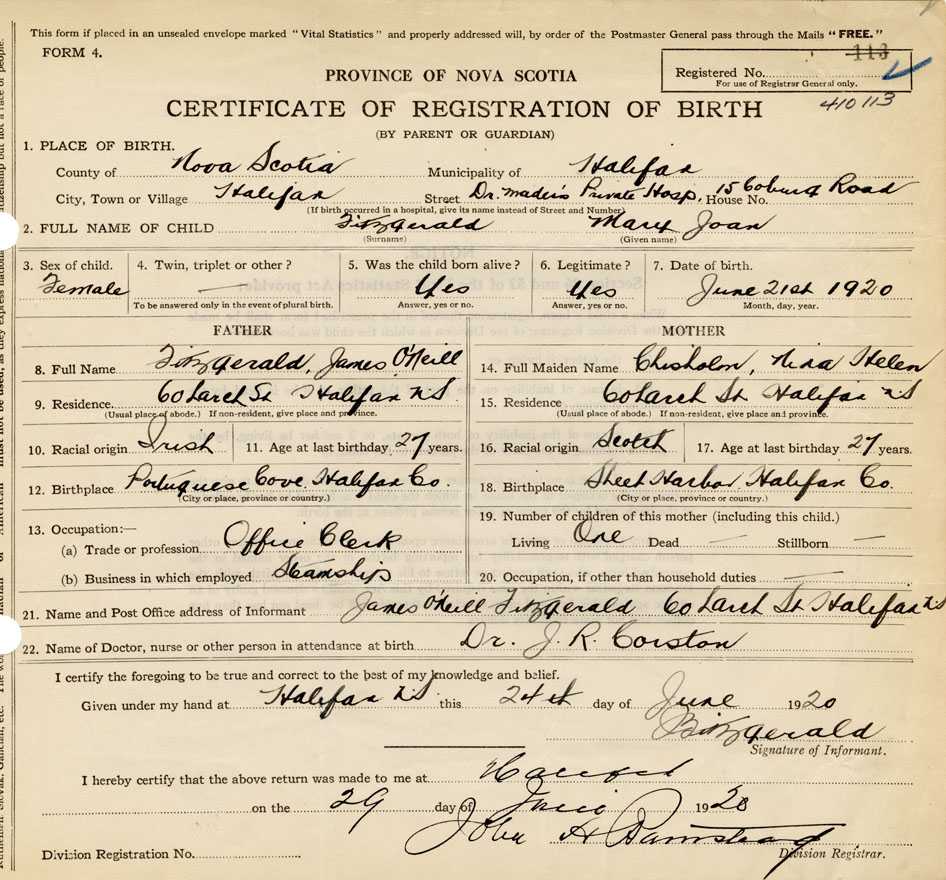 This form if placed in an unsealed envelope marked "Vital Statistics" and properly addressed will, by order of the Postmaster General pass through the Mails "FREE."
FORM 4.
113
Registered No.
For use of Registrar General only.
410113
PROVINCE OF NOVA SCOTIA
CERTIFICATE OF REGISTRATION OF BIRTH
(BY PARENT OR GUARDIAN)
1. PLACE OF BIRTH.
County of Nova Scotia Municipality of Halifax
City, Town or Village Halifax Street Dr. Mader's Private Hosp, 15 Coburg Road House No.
(If birth occurred in a hospital, give its name instead of Street and Number)
2. FULL NAME OF CHILD Fitzgerald Mary Joan
(Surname) (Given name)
3. Sex of child. 4. Twin, triplet or other? 5. Was the child born alive? 6. Legitimate? 7. Date of birth.
Female — Yes Yes June 21st 1920
To be answered only in the event of plural birth. Answer, yes or no. Answer, yes or no. Month, day, year.
FATHER
8. Full Name Fitzgerald, James O'Neill
9. Residence. 60 Larch St Halifax N S
(Usual place of abode.) If non-resident, give place and province.
10. Racial origin Irish 11. Age at last birthday 27 years.
12. Birthplace Portuguese Cove, Halifax Co.
(City or place, province or country.)
13. Occupation:—
(a) Trade or profession Office Clerk
(b) Business in which employed Steamship
MOTHER
14. Full Maiden Name Chisholm, Nina Helen
15. Residence 60 Larch St Halifax N S
(Usual place of abode.) If non-resident, give place and province.
16. Racial origin Scotch 17. Age at last birthday 27 years.
18. Birthplace Sheet Harbor Halifax Co.
(City or place, province or country.)
19. Number of children of this mother (including this child.)
Living One Dead — Stillborn —
20. Occupation, if other than household duties —
21. Name and Post Office address of Informant James O'Neill Fitzgerald 60 Larch St Halifax N S
22. Name of Doctor, nurse or other person in attendance at birth Dr. J. R. Corston
I certify the foregoing to be true and correct to the best of my knowledge and belief.
Given under my hand at Halifax N S this 24th day of June 1920
Fitzgerald
Signature of Informant.
I hereby certify that the above return was made to me at
on the 29 day of June 1920
John H
Division Registration No. Division Registrar.